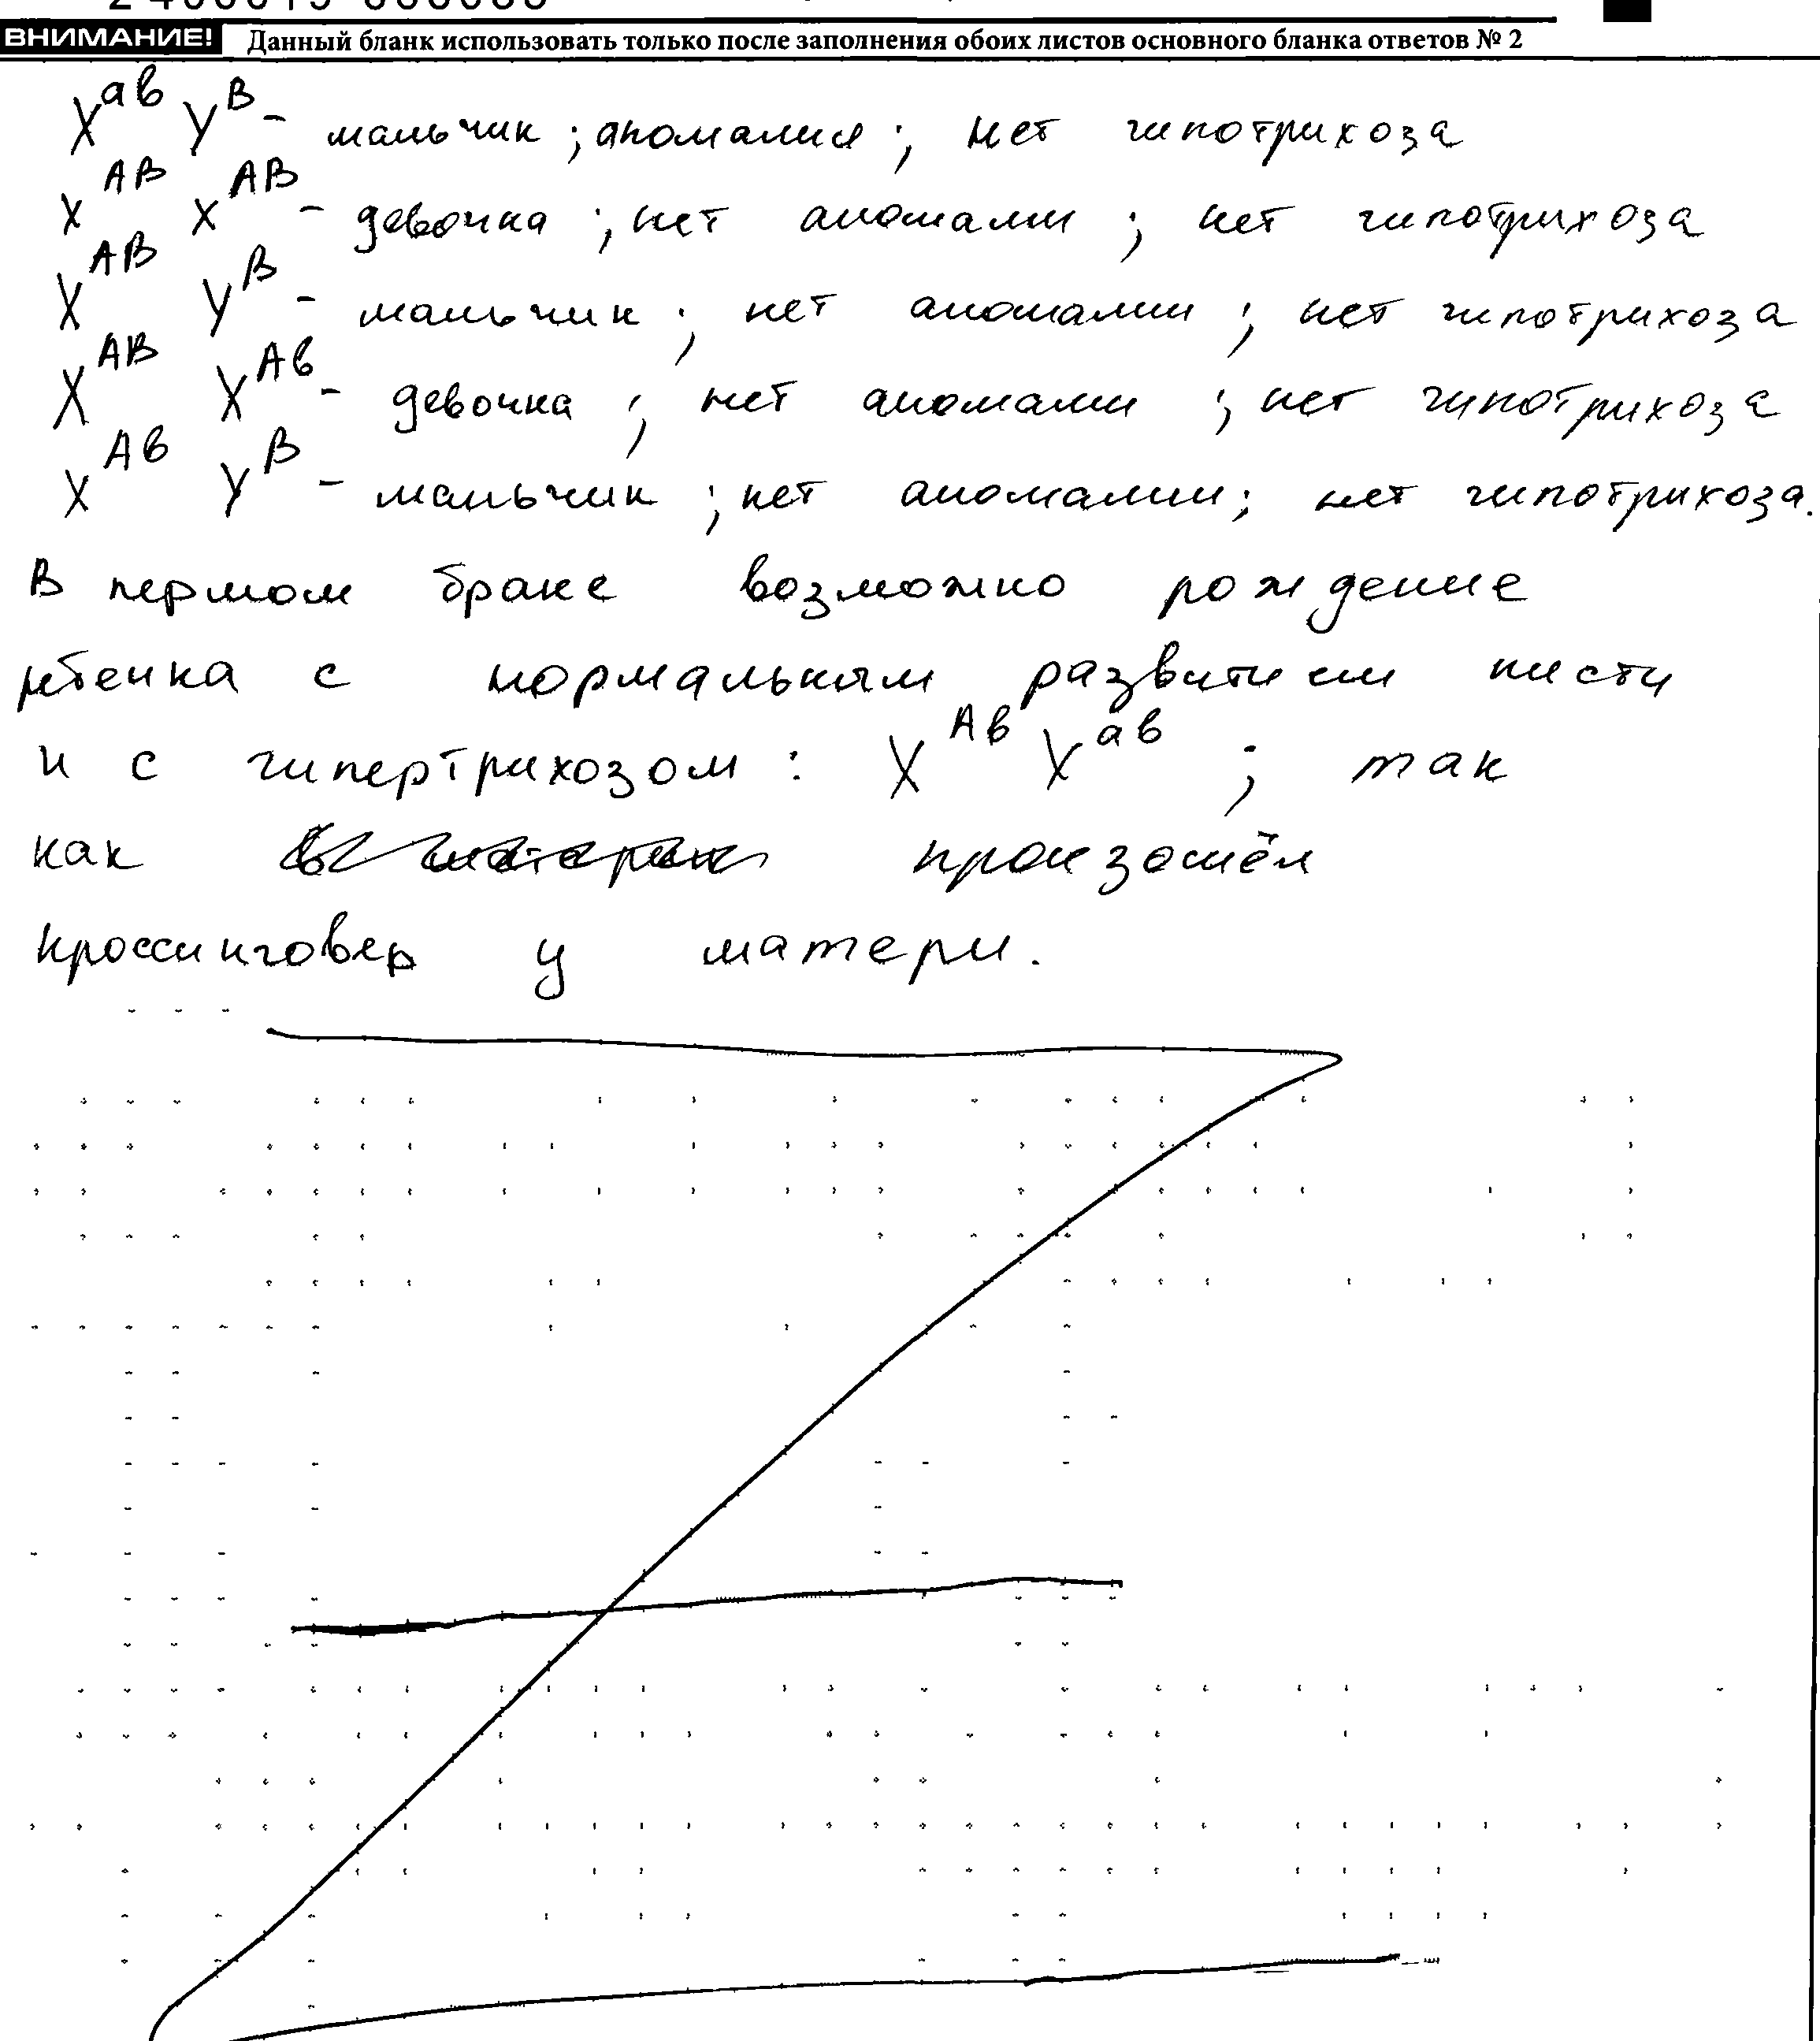 ВНИМАНИЕ! Данный бланк использовать только после заполнения обоих листов основного бланка ответов № 2
X^ав Y^В - мальчик ; аномалия ; нет гипотрихоза
X^АВ X^АВ - девочка ; нет аномалии ; нет гипотрихоза
X^АВ Y^В - мальчик ; нет аномалии ; нет гипотрихоза
X^АВ X^Ав - девочка ; нет аномалии ; нет гипотрихоза
X^Ав Y^В - мальчик ; нет аномалии ; нет гипотрихоза.
В первом браке возможно рождение
ребенка с нормальным развитием кисти
и с гипертрихозом : X^Ав X^ав ; так
как произошёл
кроссинговер у матери.